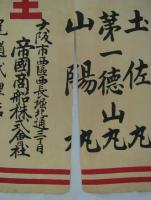 土佐丸
第一德山丸
山陽丸
大阪市西區西長堀北通三丁目
帝國商船株式會社
尾道代理店